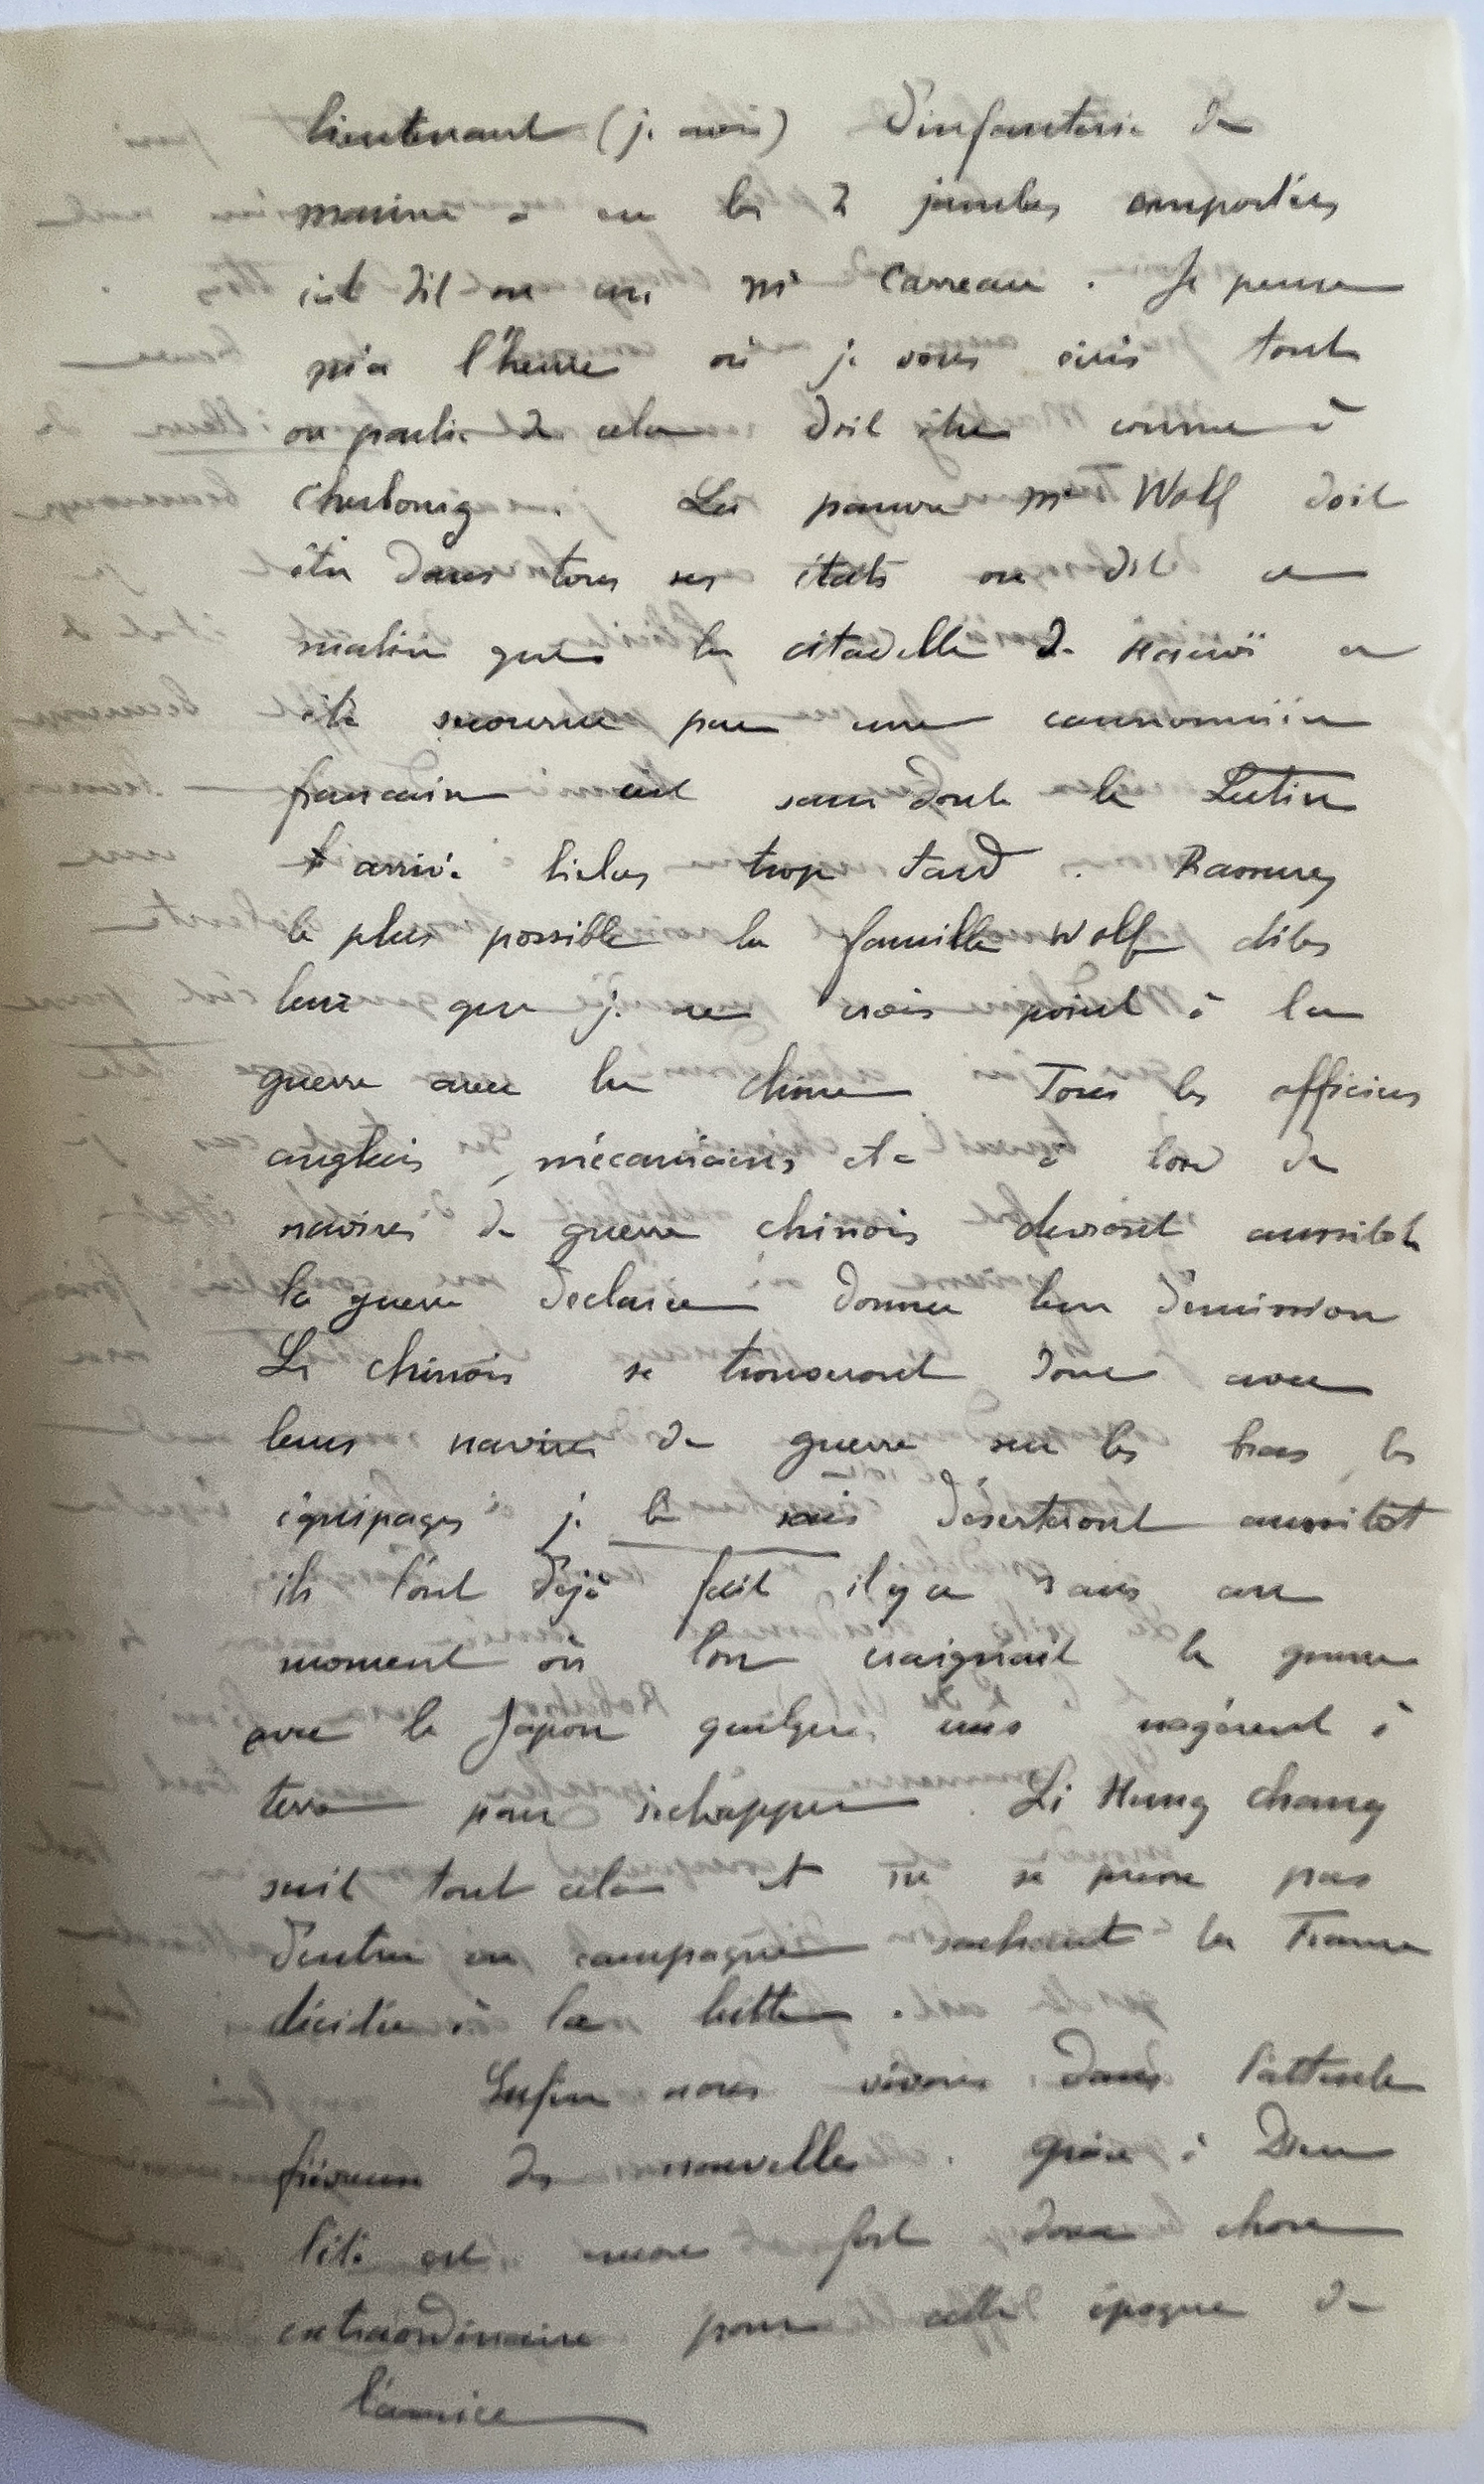 lieutenant (je crois) d'infanterie de
marine a eu les 2 jambes emportées
c'est dit on un Mr Carreau. Je pense
qu'à l'heure où je vous écris tout
ou partie de cela doit être connu à
Cherbourg. La pauvre Mme Wolf doit
être dans tous ses états on dit ce
matin que la citadelle de Hanoï a
été secourue par une cannonnière
française c'est sans doute le Lutin
arrivé hélas trop tard. Rassurez
le plus possible la famille Wolf dites
leur que je ne crois point à la
guerre avec la chine Tous les officiers
anglais, mécaniciens etc à bord de
navires de guerre chinois devront aussitôt
la guerre declarée donner leur démission
Les chinois se trouveront donc avec
leurs navires de guerre sur les bras, les
équipages je le sais déserteront aussitôt
ils l'ont déjà fait il y a 3 ans au
moment où l'on craignait la guerre
avec le Japon quelques uns nagèrent à
terre pour s'échapper. Li Hung Chang
sait tout cela et ne se presse pas
d'entrer en campagne sachant la France
décidée à la lutte.
Enfin nous vivons dans l'attente
fiévreuse des nouvelles. Grâce à Dieu
l'été est encore fort doux chose
extraordinaire pour cette époque de
l'année